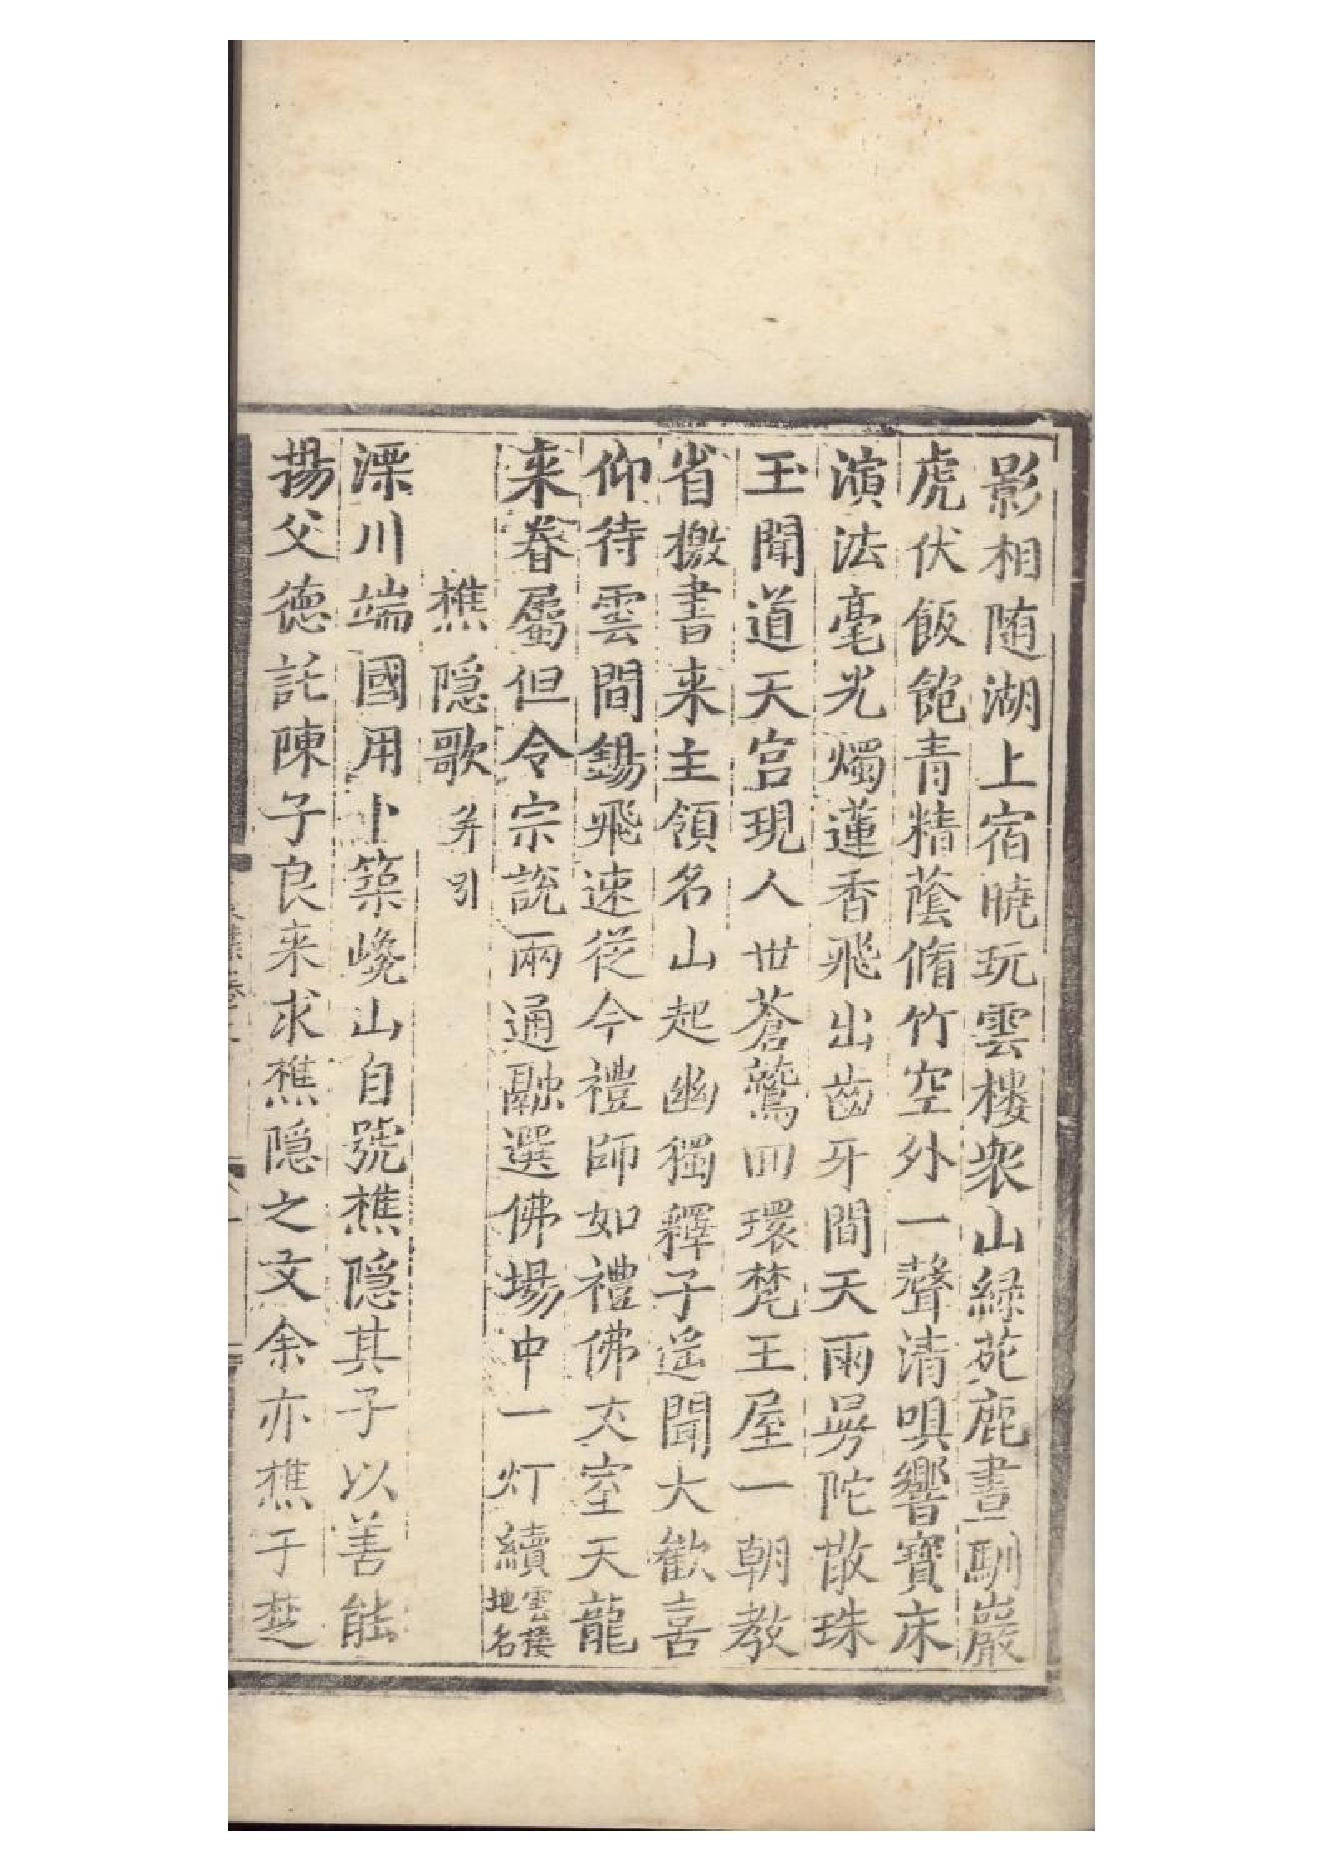 影相随湖上宿曉玩雲樓衆山綠苑鹿晝馴巖
虎伏飯飽青精蔭脩竹空外一聲清唄響寶床
演法毫光燭蓮香飛出齒牙間天雨曼陀散珠
玉聞道天宫現人世蒼鷲囬環梵王屋一朝教
省檄書来主領名山起幽獨釋子遥聞大歡喜
仰待雲間錫飛速從今禮師如禮佛丈室天龍
来眷屬但令宗說兩通融選佛場中一灯續雲樓地名
樵隠歌并引
溧川端國用卜築嶘山自號樵隠其子以善能
揚父徳託陳子良来求樵隠之文余亦樵于楚